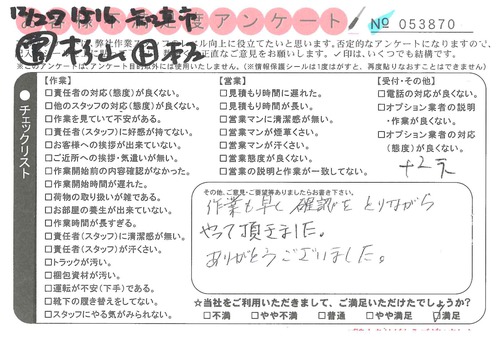 お客様満足度アンケート
№ 053870
※このアンケートは、アンケート目的以外には使用いたしません。(※情報保護シールは1度はがすと、再度貼りなおすことはできません)
チェックリスト
【作業】
□責任者の対応(態度)が良くない。
□他のスタッフの対応(態度)が良くない。
□作業を見ていて不安がある。
□責任者(スタッフ)に好感が持てない。
□お客様への挨拶が出来ていない。
□ご近所への挨拶・気遣いが無い。
□作業開始前の内容確認がなかった。
□作業開始時間が遅れた。
□荷物の取り扱いが雑である。
□お部屋の養生が出来ていない。
□作業時間が長すぎる。
□責任者(スタッフ)に清潔感が無い。
□責任者(スタッフ)が汗くさい。
□トラックが汚い。
□梱包資材が汚い。
□運転が不安(下手)である。
□靴下の履き替えをしてない。
□スタッフにやる気がみられない。
【営業】
□見積もり時間に遅れた。
□見積もり時間が長い。
□営業マンに清潔感が無い。
□営業マンが煙草くさい。
□営業マンが汗くさい。
□営業態度が良くない。
□営業の説明と作業が一致してない。
【受付・その他】
□電話の対応が良くない。
□オプション業者の説明
・作業が良くない。
□オプション業者の対応
(態度)が良くない。
その他、ご意見・ご要望等ありましたらお書き下さい。
作業も早く確認をとりながら
やって頂きました。
ありがとうございました。
☆当社をご利用いただきまして、ご満足いただけたでしょうか?
□不満 □やや不満 □普通 □やや満足 ☑満足